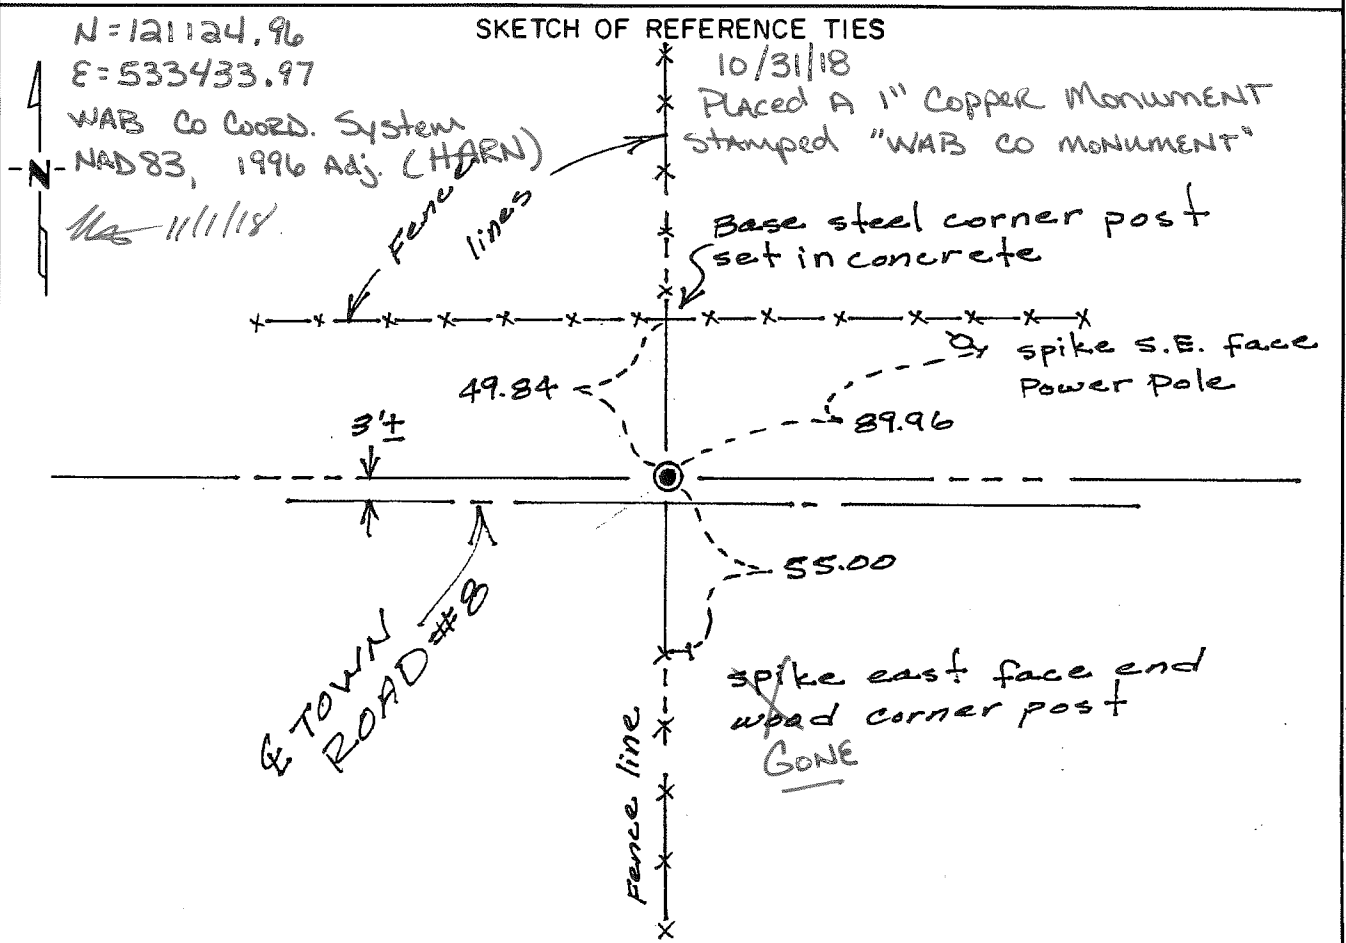 SKETCH OF REFERENCE TIES
N=121124.96
E=533433.97
WAB Co Coord. System
NAD83, 1996 Adj. (HARN)
11/1/18
N
10/31/18
Placed A 1" Copper Monument
Stamped "WAB CO MONUMENT"
Fence
lines
Base steel corner post
set in concrete
spike S.E. face
Power Pole
49.84
89.96
3'±
55.00
℄ TOWN
ROAD #8
spike east face end
wood corner post
GONE
Fence line